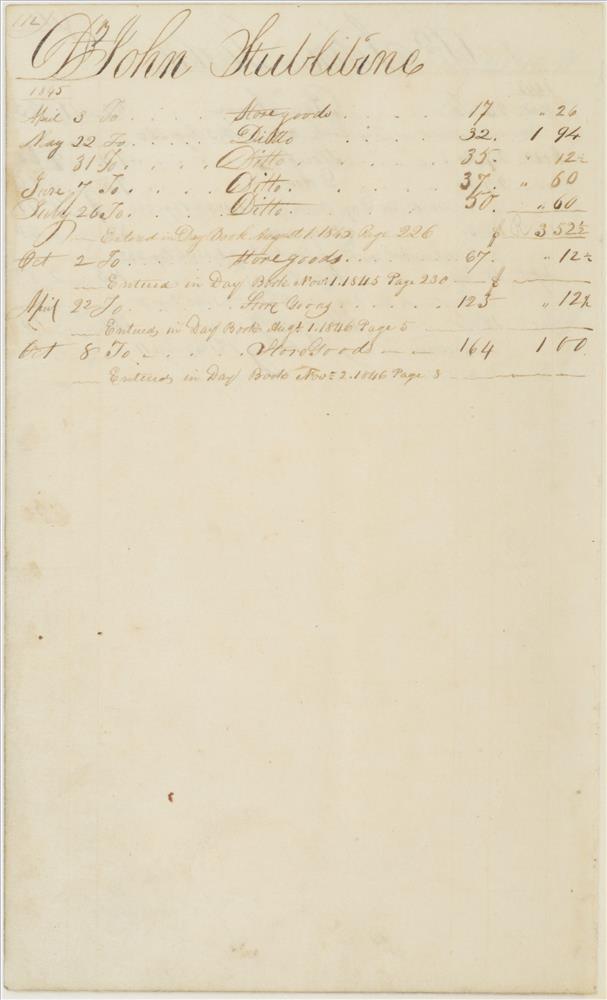 112
Dr John Stublibine
1845
April 3 To . . . . Store goods . . . . 17 " 26
May 22 To . . . . Ditto . . . . 32. 1 94
31 To . . . . Ditto . . . . 35. " 12½
June 7 To . . . . Ditto . . . . 37. " 60
July 26 To . . . . Ditto . . . . 50. " 60
Entered in Day Book August 1. 1845 Page 226 $ 3 52½
Oct 2 To . . . Store goods . . . . 67. " 12½
Entered in Day Book Novr 1. 1845 Page 230 $
April 22 To . . . . Store Goods . . . . 123 " 12½
Entered in Day Book Augt 1. 1846 Page 5
Oct 8 To . . . . Store Goods 164 1 00
Entered in Day Book Novr 2. 1846 Page 8